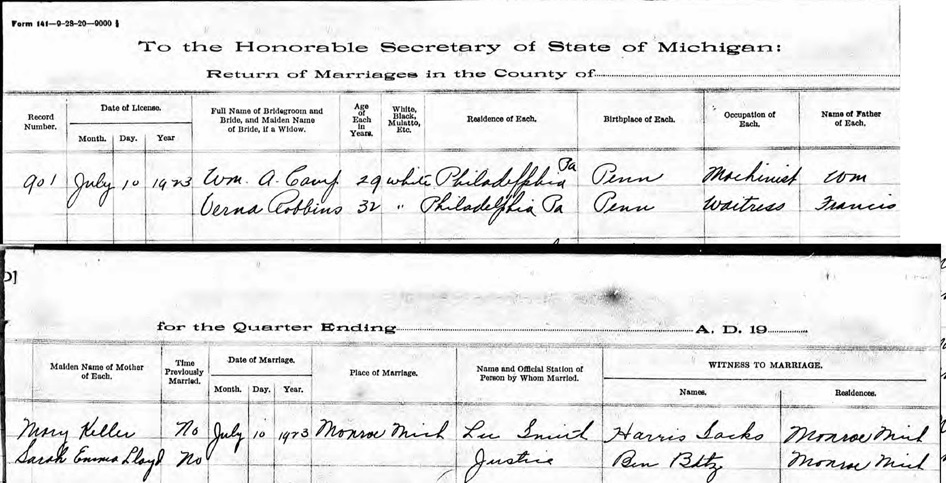 Form 141—9-28-20—9000
To the Honorable Secretary of State of Michigan:
Return of Marriages in the County of
Record Number. Date of License. Month. Day. Year Full Name of Bridegroom and Bride, and Maiden Name of Bride, if a Widow. Age of Each in Years. White, Black, Mulatto, Etc. Residence of Each. Birthplace of Each. Occupation of Each. Name of Father of Each.
901 July 10 1923 Wm. A. Camp 29 white Philadelphia Pa Penn Machinist Wm
Verna Robbins 32 " Philadelphia Pa Penn Waitress Francis
D]
for the Quarter Ending A. D. 19
Maiden Name of Mother of Each. Time Previously Married. Date of Marriage. Month. Day. Year. Place of Marriage. Name and Official Station of Person by Whom Married. WITNESS TO MARRIAGE. Names. Residences.
Mary Keller No July 10 1923 Monroe Mich Lee Smith Harris Sacks Monroe Mich
Sarah Emma Lloyd No Justice Ben Monroe Mich